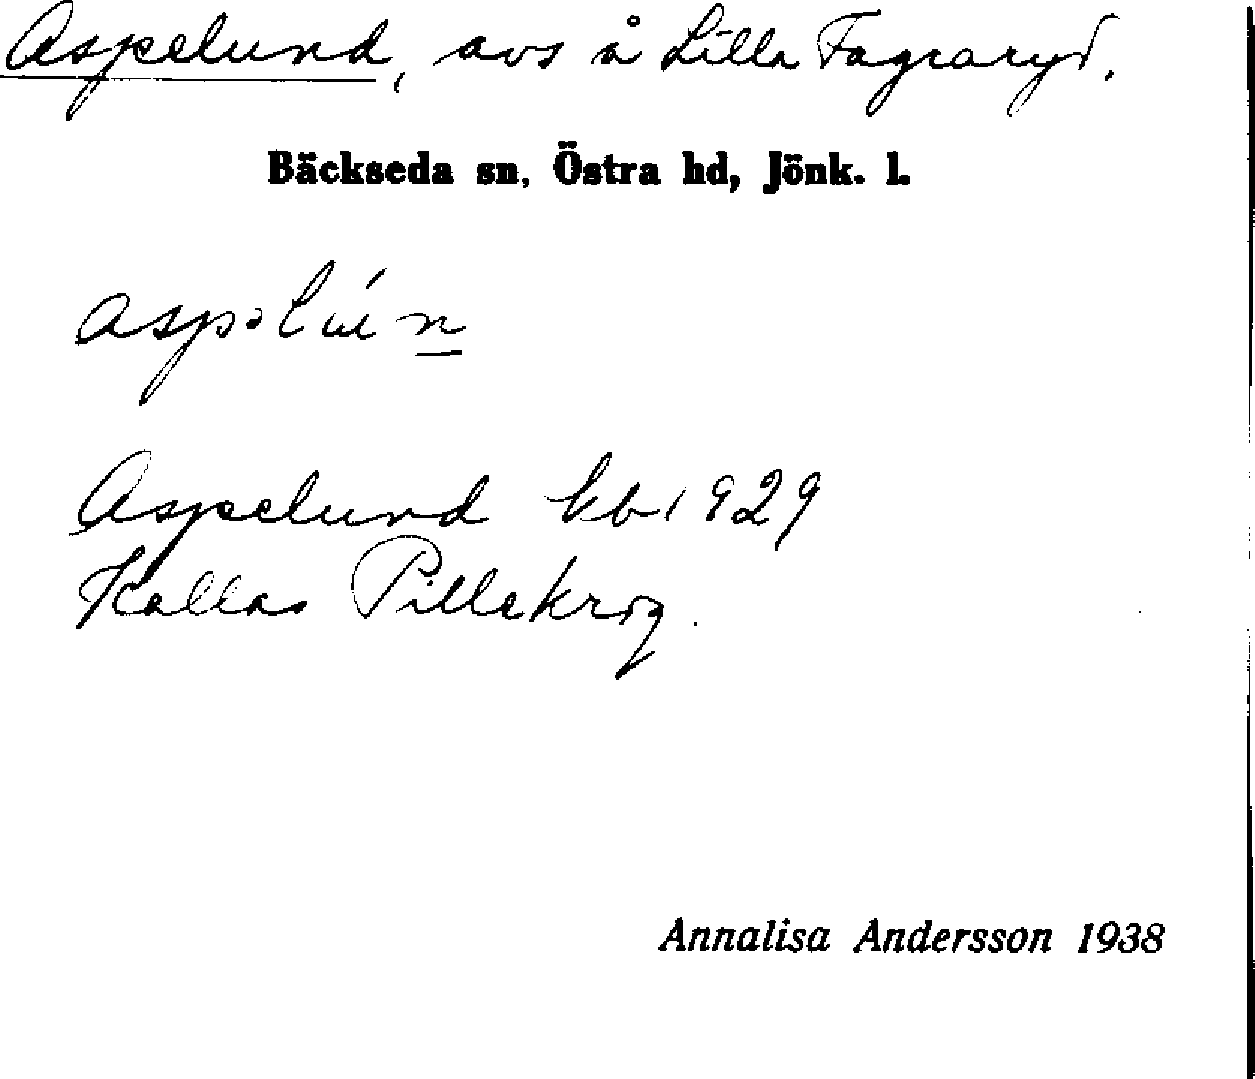 Aspelund, avs å Lilla Fagraryd.
Bäckseda sn, Östra hd, Jönk. l.
Aspelund kb 1929
Kallas Pillekrog.
Annalisa Andersson 1938